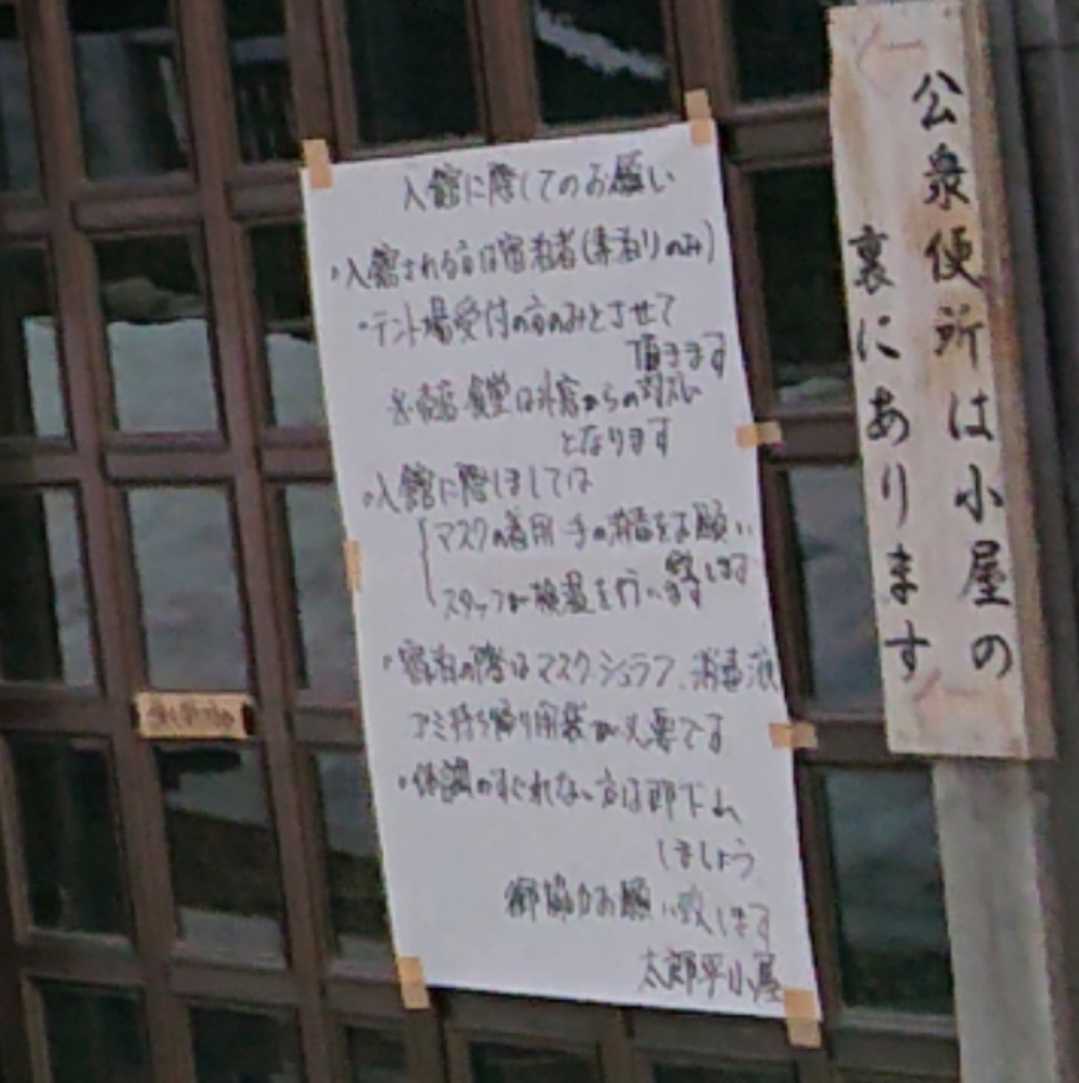 入館に際してのお願い
・入館される方は宿泊者(素泊りのみ)
・テント場受付の方のみとさせて
頂きます
※売店・食堂は外窓からの対応
となります
・入館に際しましては
マスクの着用 手の消毒をお願い
致します
スタッフが検温を行います
・宿泊の際はマスク、シュラフ、消毒液
ゴミ持ち帰り用袋が必要です
・体調のすぐれない方は即下山
しましょう
御協力お願い致します
太郎平小屋
公衆便所は小屋の
裏にあります